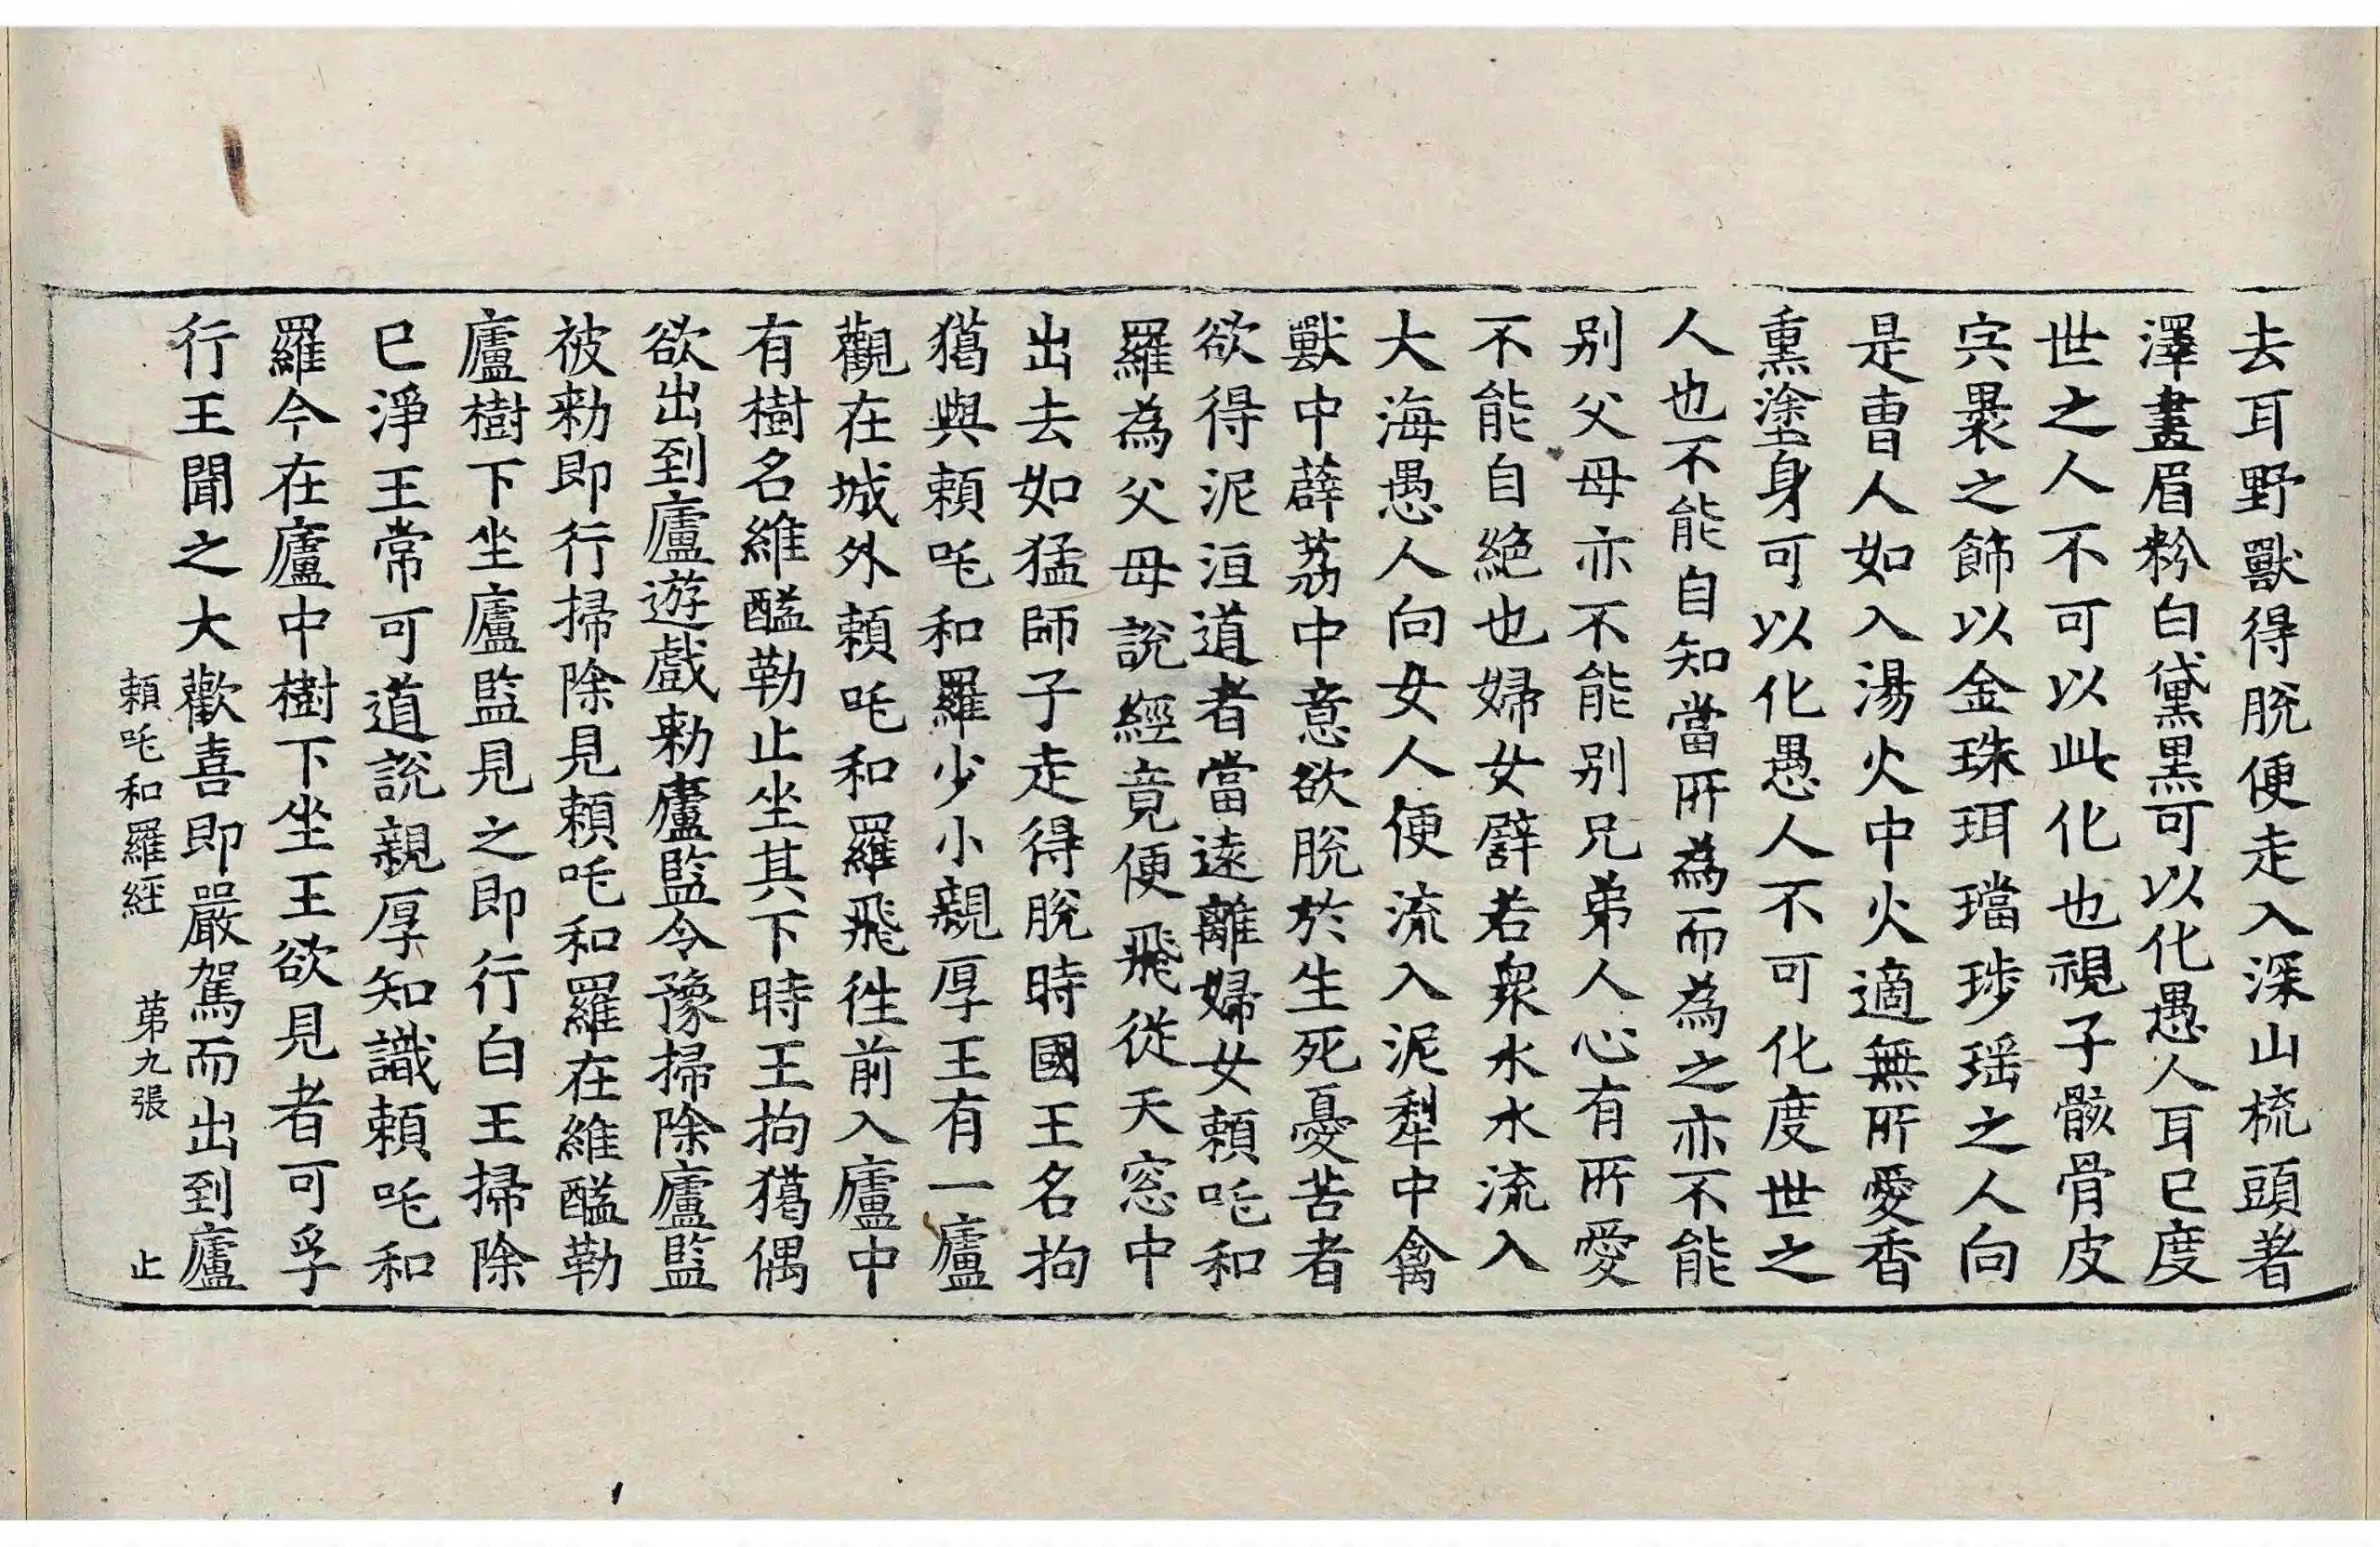 去耳野獸得脫便走入深山梳頭著
澤畫眉粉白黛黑可以化愚人耳已度
世之人不可以此化也視子骸骨皮
肉裹之飾以金珠珥璫琗瑶之人向
是曹人如入湯火中火適無所愛香
熏塗身可以化愚人不可化度世之
人也不能自知當所為而為之亦不能
别父母亦不能别兄弟人心有所愛
不能自絕也婦女譬若衆水水流入
大海愚人向女人便流入泥犁中禽
獸中薜荔中意欲脫於生死憂苦者
欲得泥洹道者當遠離婦女頼吒和
羅為父母說經竟便飛從天窓中
出去如猛師子走得脫時國王名拘
獦與頼吒和羅少小親厚王有一廬
觀在城外頼吒和羅飛徃前入廬中
有樹名維醯勒止坐其下時王拘獦偶
欲出到廬遊戲勑廬監令豫掃除廬監
被勑即行掃除見頼吒和羅在維醯勒
廬樹下坐廬監見之即行白王掃除
已淨王常可道說親厚知識頼吒和
羅今在廬中樹下坐王欲見者可孚
行王聞之大歡喜即嚴駕而出到廬
頼吒和羅經 苐九張 止